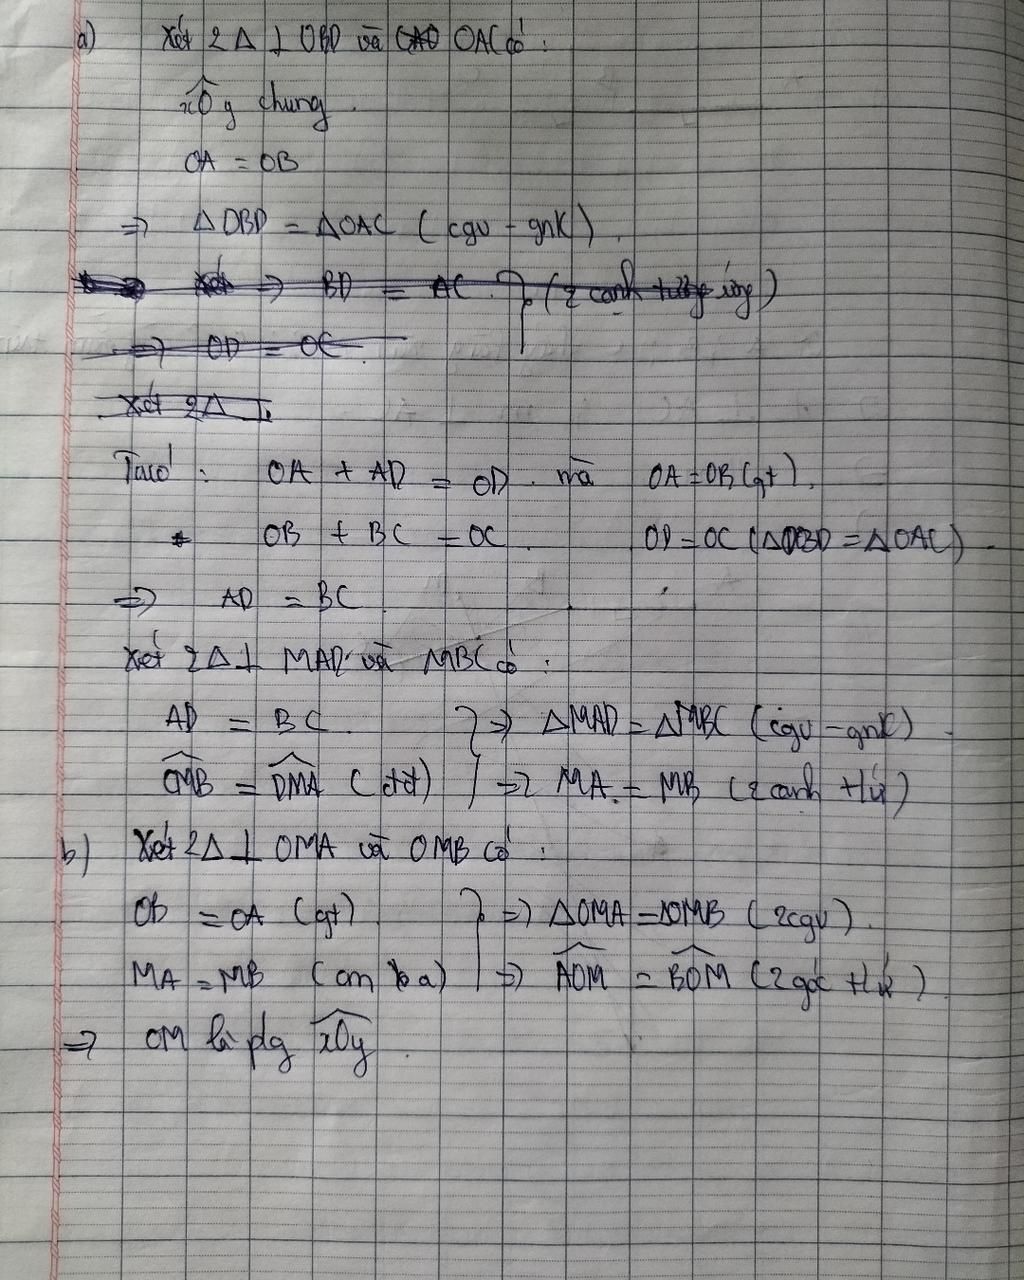 a) Xét 2 Δ ⊥ OBD và OAC có :
xÔy chung
OA = OB
=> Δ OBD = Δ OAC ( cgv - gnk ) .
Xét => BD = AC } ( 2 cạnh tương ứng )
=> OD = OC
Xét 2Δ ⊥
Ta có : OA + AD = OD . mà OA = OB (gt) .
OB + BC = OC . OD = OC (ΔOBD = ΔOAC) .
=> AD = BC
Xét 2Δ ⊥ MAD và MBC có :
AD = BC } => ΔMAD = ΔMBC (cgv - gnk) .
CMB = DMA (đđ) => MA = MB (2 cạnh tứ)
b) Xét 2Δ ⊥ OMA và OMB có :
OB = OA (gt) } => ΔOMA = ΔOMB ( 2cgv ) .
MA = MB (cm a) => AOM = BOM (2 góc tứ)
=> OM là pg xOy .